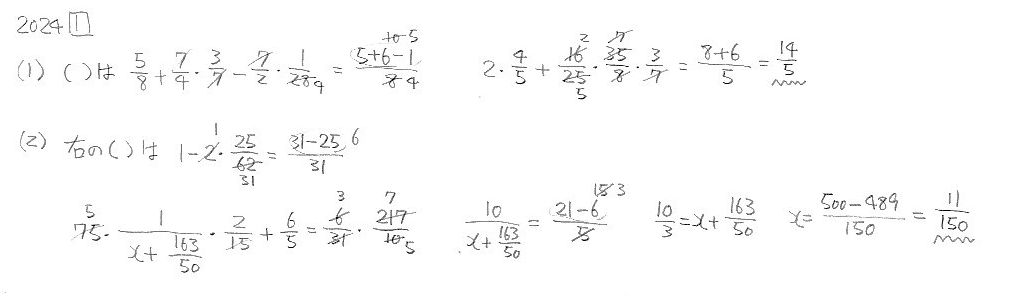 2024 1
(1) ( )は 5/8 + 7/4 · 3/7 − 7/2 · 1/28 4 = 5+6−1 10 5 / 8 4 2 · 4/5 + 16 2 / 25 5 · 35 7 / 8 · 3/7 = 8+6 / 5 = 14/5
(2) 右の( )は 1 − 2 1 · 25 / 62 31 = 31−25 6 / 31
75 5 · 1 / x + 163/50 · 2/15 + 6/5 = 6 3 / 31 · 217 7 / 10 5 10 / x + 163/50 = 21−6 15 3 / 5 10/3 = x + 163/50 x = 500−489 / 150 = 11/150